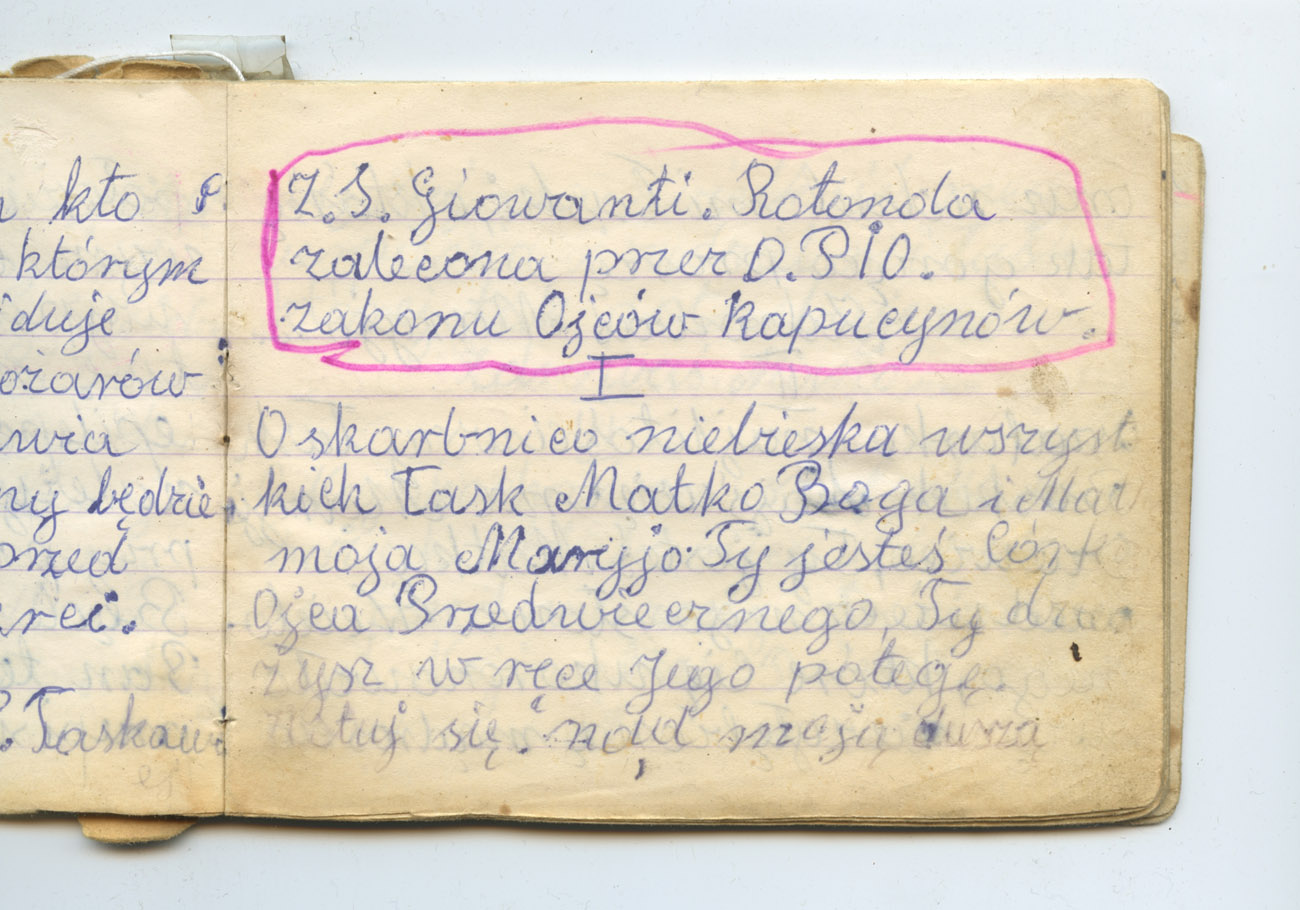 kto P.
którym
duje
ożarów
wia
ny będzie
przed
rci.
P. Łaskaw
Z. S. Giowanti. Rotonda
zalecona przez O. PIO.
zakonu Ojców Kapucynów.
I
O skarbnico niebieska wszyst
kich łask Matko Boga i Mat
moja Maryjo. Ty jesteś Córk
Ojca Przedwiecznego Ty dzier
żysz w ręce Jego potęgę.
lituj się nad moją duszą